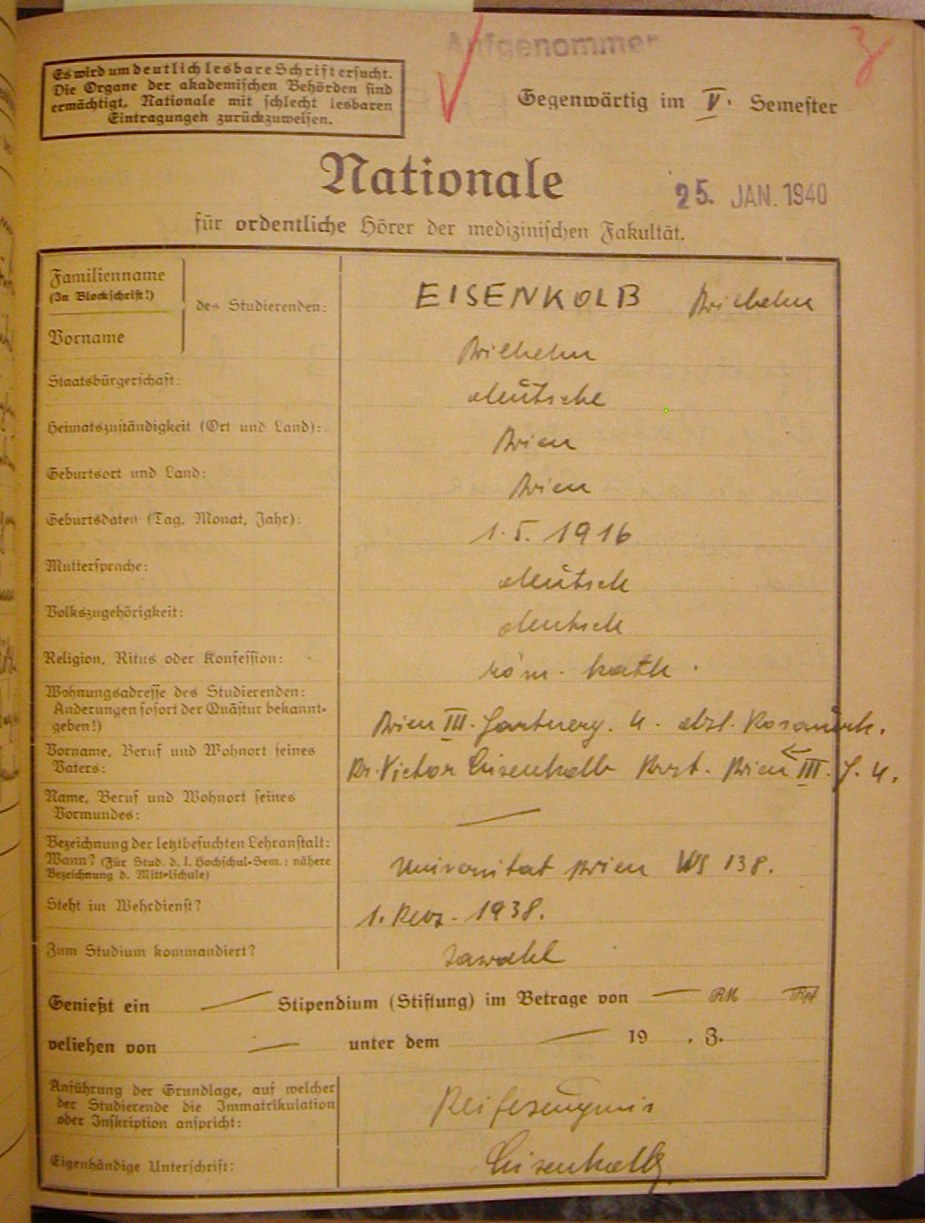 Aufgenommen
Es wird um deutlich lesbare Schrift ersucht.
Die Organe der akademischen Behörden sind
ermächtigt, Nationale mit schlecht lesbaren
Eintragungen zurückzuweisen.
Gegenwärtig im V. Semester
Nationale
25. JAN. 1940
für ordentliche Hörer der medizinischen Fakultät.
Familienname
(In Blockschrift!)
des Studierenden:
EISENKOLB Wilhelm
Vorname
Wilhelm
Staatsbürgerschaft:
deutsche
Heimatszuständigkeit (Ort und Land):
Wien
Geburtsort und Land:
Wien
Geburtsdaten (Tag, Monat, Jahr):
1. 5. 1916
Muttersprache:
deutsch
Volkszugehörigkeit:
deutsch
Religion, Ritus oder Konfession:
röm. kath.
Wohnungsadresse des Studierenden:
Änderungen sofort der Quästur bekannt-
geben!)
Wien III.
4.
Vorname, Beruf und Wohnort seines
Vaters:
Dr. Victor Eisenkolb Arzt. Wien III. G. 4.
Name, Beruf und Wohnort seines
Vormundes:
—
Bezeichnung der letztbesuchten Lehranstalt:
Wann? (Für Stud. d. I. Hochschul-Sem.: nähere
Bezeichnung d. Mittelschule)
Universität Wien WS 138.
Steht im Wehrdienst?
1. 1938.
Zum Studium kommandiert?
Jawohl
Genießt ein — Stipendium (Stiftung) im Betrage von — RM — Rpf
veliehen von — unter dem — 19 , Z.
Anführung der Grundlage, auf welcher
der Studierende die Immatrikulation
oder Inskription anspricht:
Reifezeugnis
Eigenhändige Unterschrift:
Eisenkolb